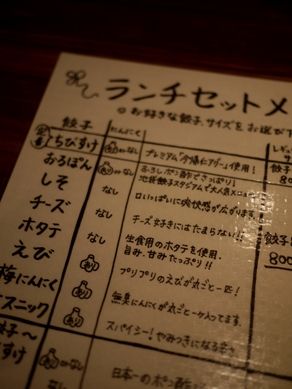 ランチセットメ
お好きな餃子、サイズをお選び下
餃子 にんにく
ちびすけ あり or なし プレミアム 使用!
おろぽん あり or なし おろしポン酢でさっぱり!
しそ なし 池袋餃子スタジアムで大人気
チーズ なし 口いっぱいに 広がります。
ホタテ なし チーズ好きにはたまらない
えび なし 生食用のホタテを使用。
旨み、甘みたっぷり!!
梅にんにく あり プリプリのえびが丸ごと一匹!
スニック あり 無臭にんにくが丸ごと入ってます。
あり スパイシー!やみつきになる
餃子〜
すけ あり or なし 日本一のポン酢
餃子
800
餃子
800